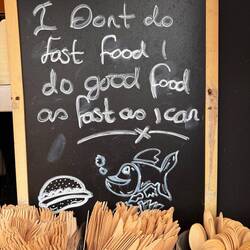 I Dont do
fast food I
do good food
as fast as I can